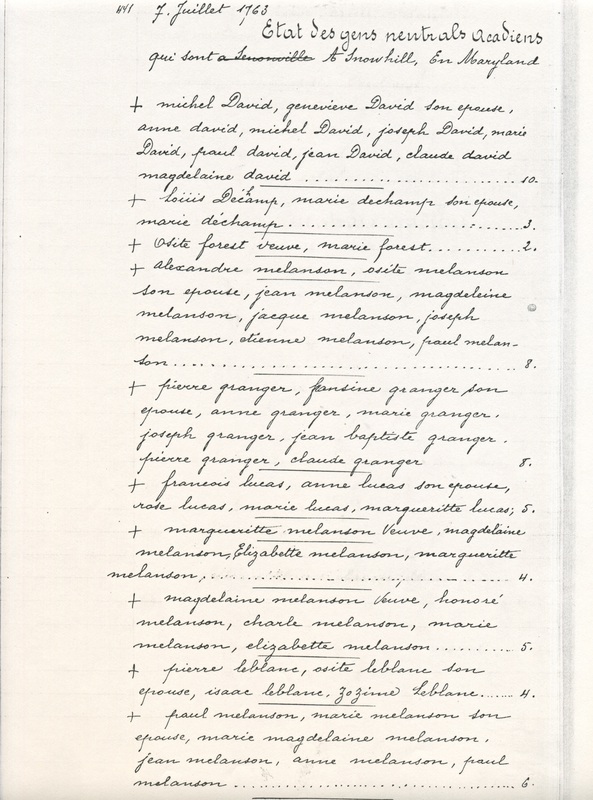 441 7. Juillet 1763
Etat des gens neutrals acadiens
qui sont a Snowhill, En Maryland
+ michel David, genevieve David son epouse,
anne david, michel David, joseph David, marie
David, paul david, jean David, claude david
magdelaine david .......... 10.
+ loüis Décamp, marie dechamp son epouse,
marie déchamp .......... 3.
+ Osite forest veuve, marie forest .......... 2.
+ alexandre melanson, osite melanson
son epouse, jean melanson, magdeleine
melanson, jacque melanson, joseph
melanson, etienne melanson, paul melan-
son .......... 8.
+ pierre granger, fansine granger son
epouse, anne granger, marie granger,
joseph granger, jean baptiste granger.
pierre granger, claude granger 8.
+ francois lucas, anne lucas son epouse,
rose lucas, marie lucas, margueritte lucas; 5.
+ margueritte melanson Veuve, magdelaine
melanson, Elizabette melanson, margueritte
melanson, .......... 4.
+ magdelaine melanson Veuve, honoré
melanson, charle melanson, marie
melanson, elizabette melanson .......... 5.
+ pierre leblanc, osite leblanc son
epouse, isaac leblanc, Zozime Leblanc ...... 4.
+ paul melanson, marie melanson son
epouse, marie magdelaine melanson,
jean melanson, anne melanson, paul
melanson .......... 6.